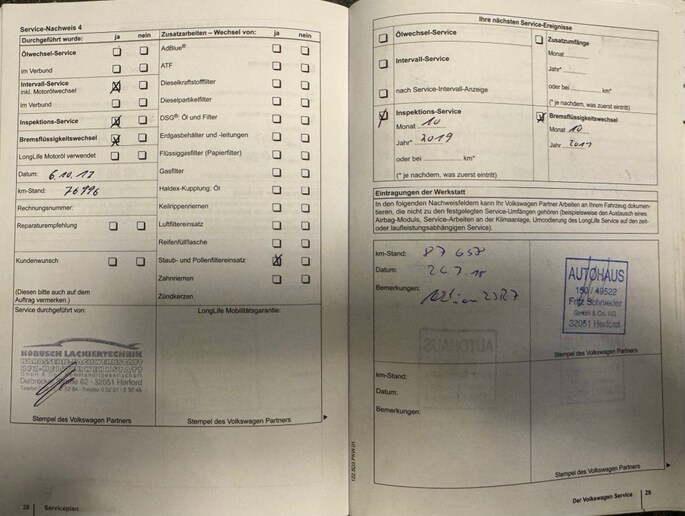 Service-Nachweis 4
Durchgeführt wurde: ja nein
Ölwechsel-Service
im Verbund
Intervall-Service
inkl. Motorölwechsel
im Verbund
Inspektions-Service
Bremsflüssigkeitswechsel
LongLife Motoröl verwendet
Datum: 6.10.17
km-Stand: 76996
Rechnungsnummer:
Reparaturempfehlung
Kundenwunsch
(Diesen bitte auch auf dem
Auftrag vermerken.)
Zusatzarbeiten – Wechsel von: ja nein
AdBlue®
ATF
Dieselkraftstofffilter
Dieselpartikelfilter
DSG®: Öl und Filter
Erdgasbehälter und -leitungen
Flüssiggasfilter (Papierfilter)
Gasfilter
Haldex-Kupplung: Öl
Keilrippenriemen
Luftfiltereinsatz
Reifenfüllflasche
Staub- und Pollenfiltereinsatz
Zahnriemen
Zündkerzen
Service durchgeführt von:
KOBUSCH LACKIERTECHNIK
KAROSSERIE-FACHWERKSTATT
KFZ-MEISTERWERKSTATT
Diebrocker Straße 62 - 32051 Herford
Stempel des Volkswagen Partners
LongLife Mobilitätsgarantie:
Stempel des Volkswagen Partners
28 Serviceplan
Ihre nächsten Service-Ereignisse
Ölwechsel-Service
Intervall-Service
nach Service-Intervall-Anzeige
Zusatzumfänge
Monat
Jahr*
oder bei km*
(* je nachdem, was zuerst eintritt)
Inspektions-Service
Monat 10
Jahr* 2019
oder bei km*
(* je nachdem, was zuerst eintritt)
Bremsflüssigkeitswechsel
Monat 10
Jahr
Eintragungen der Werkstatt
In den folgenden Nachweisfeldern kann Ihr Volkswagen Partner Arbeiten an Ihrem Fahrzeug dokumen-
tieren, die nicht zu den festgelegten Service-Umfängen gehören (beispielsweise den Austausch eines
Airbag-Moduls, Service-Arbeiten an der Klimaanlage, Umcodierung des LongLife Service auf den zeit-
oder laufleistungsabhängigen Service).
km-Stand: 87 658
Datum:
Bemerkungen: 23R7
AUTOHAUS
150 / 49522
Fritz Schnieder
GmbH & Co. KG
32051 Herford
Stempel des Volkswagen Partners
km-Stand:
Datum:
Bemerkungen:
Stempel des Volkswagen Partners
Der Volkswagen Service 29